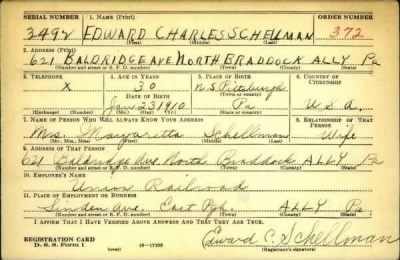 SERIAL NUMBER 1. NAME (Print) ORDER NUMBER
3492 EDWARD CHARLES SCHELLMAN 372
(First) (Middle) (Last)
2. ADDRESS (Print)
621 BALDRIDGE AVE NORTH BRADDOCK ALLY Pa
(Number and street or R. F. D. number) (Town) (County) (State)
3. TELEPHONE 4. AGE IN YEARS 5. PLACE OF BIRTH 6. COUNTRY OF CITIZENSHIP
X 30 N.S. Pittsburgh
DATE OF BIRTH (Town or county)
Jan 23 1910 Pa U.S.A.
(Exchange) (Number) (Mo.) (Day) (Yr.) (State or country)
7. NAME OF PERSON WHO WILL ALWAYS KNOW YOUR ADDRESS 8. RELATIONSHIP OF THAT PERSON
Mrs. Margaretta Schellman Wife
(Mr., Mrs., Miss) (First) (Middle) (Last)
9. ADDRESS OF THAT PERSON
621 Baldridge Ave. North Braddock ALLY Pa
(Number and street or R. F. D. number) (Town) (County) (State)
10. EMPLOYER'S NAME
Union Railroad
11. PLACE OF EMPLOYMENT OR BUSINESS
Linden Ave. East Pgh ALLY Pa
(Number and street or R. F. D. number) (Town) (County) (State)
I AFFIRM THAT I HAVE VERIFIED ABOVE ANSWERS AND THAT THEY ARE TRUE.
REGISTRATION CARD
D. S. S. FORM 1 16-17105 Edward C. Schellman
(Registrant's signature)